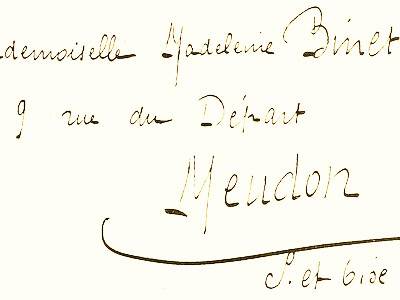 ademoiselle Madeleine Binet
9 rue du Départ
Meudon
S. et Oise